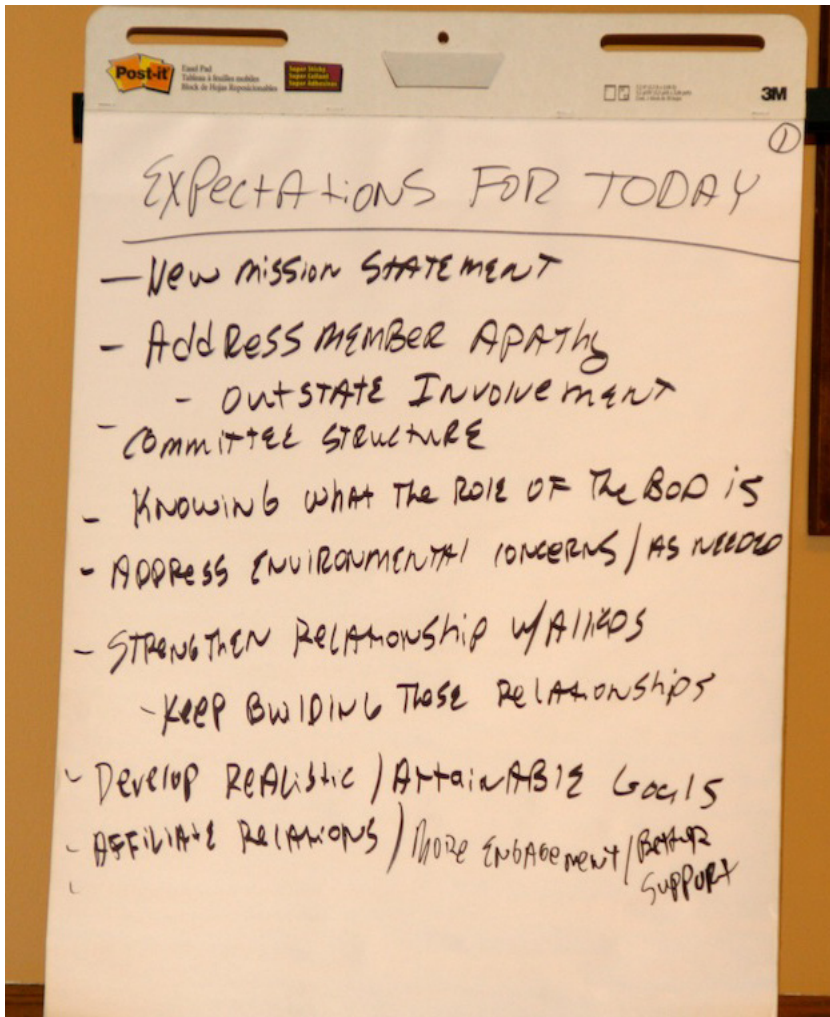 Post-it
Easel Pad
Tableau à feuilles mobiles
Block de Hojas Reposicionables
Super Sticky
Super Collant
Super Adhesivas
3M
1
EXPectAtioNS FOR TODAY
- New mission STATEMENT
- Address MEMBER APAThy
- OutSTATE INvolvement
- Committee STRuctuRE
- KNOWING what The ROLE OF The BOD is
- ADDRess ENVIRONMENTAl CONCERNS / AS NEEDED
- STRENGThEN RelAtioNShip w/ Allieds
- Keep BuilDING ThesE RelAtionships
- Develop ReAlistic / AttainABlE GoalS
- AFFiliAtE RelAtioNS / MoRE ENGAGEMENT / Better
SuppoRt
-